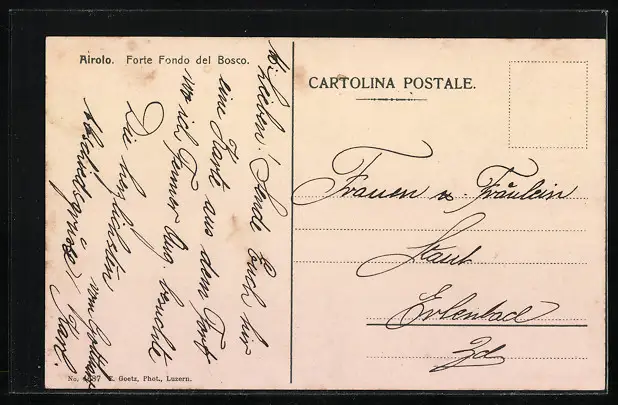 Airolo. Forte Fondo del Bosco.
CARTOLINA POSTALE.
M. Lieben! Sende Euch hier
eine Karte aus dem Fort
wo ich besuchte
Die herzlichsten
Abschiedsgrüsse vom Gotthard
Karl.
Frauen u. Fräulein
Staub
Erlenbach
Zch
E. Goetz, Phot., Luzern.